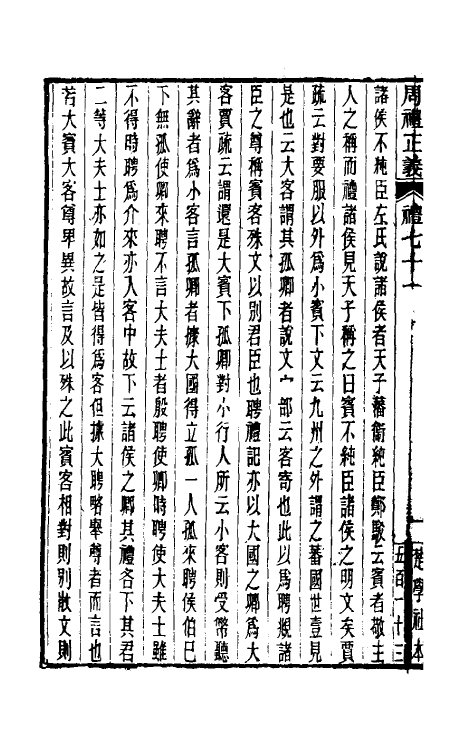 周禮正義
禮七十一
一
楚學社本
五百一十三
諸侯不純臣左氏說諸侯者天子藩衞純臣鄭駮云賓者敬主
人之稱而禮諸侯見天子稱之曰賓不純臣諸侯之明文矣賈
疏云對要服以外爲小賓下文云九州之外謂之蕃國世壹見
是也云大客謂其孤卿者說文宀部云客寄也此以爲聘覜諸
臣之尊稱賓客殊文以別君臣也聘禮記亦以大國之卿爲大
客賈疏云謂還是大賓下孤卿對小行人所云小客則受幣聽
其辭者爲小客言孤卿者據大國得立孤一人孤來聘侯伯已
下無孤使卿來聘不言大夫士者殷聘使卿時聘使大夫士雖
不得時聘爲介來亦入客中故下云諸侯之卿其禮各下其君
二等大夫士亦如之是皆得爲客但據大聘略舉尊者而言也
若大賓大客尊卑異故言及以殊之此賓客相對則別散文則